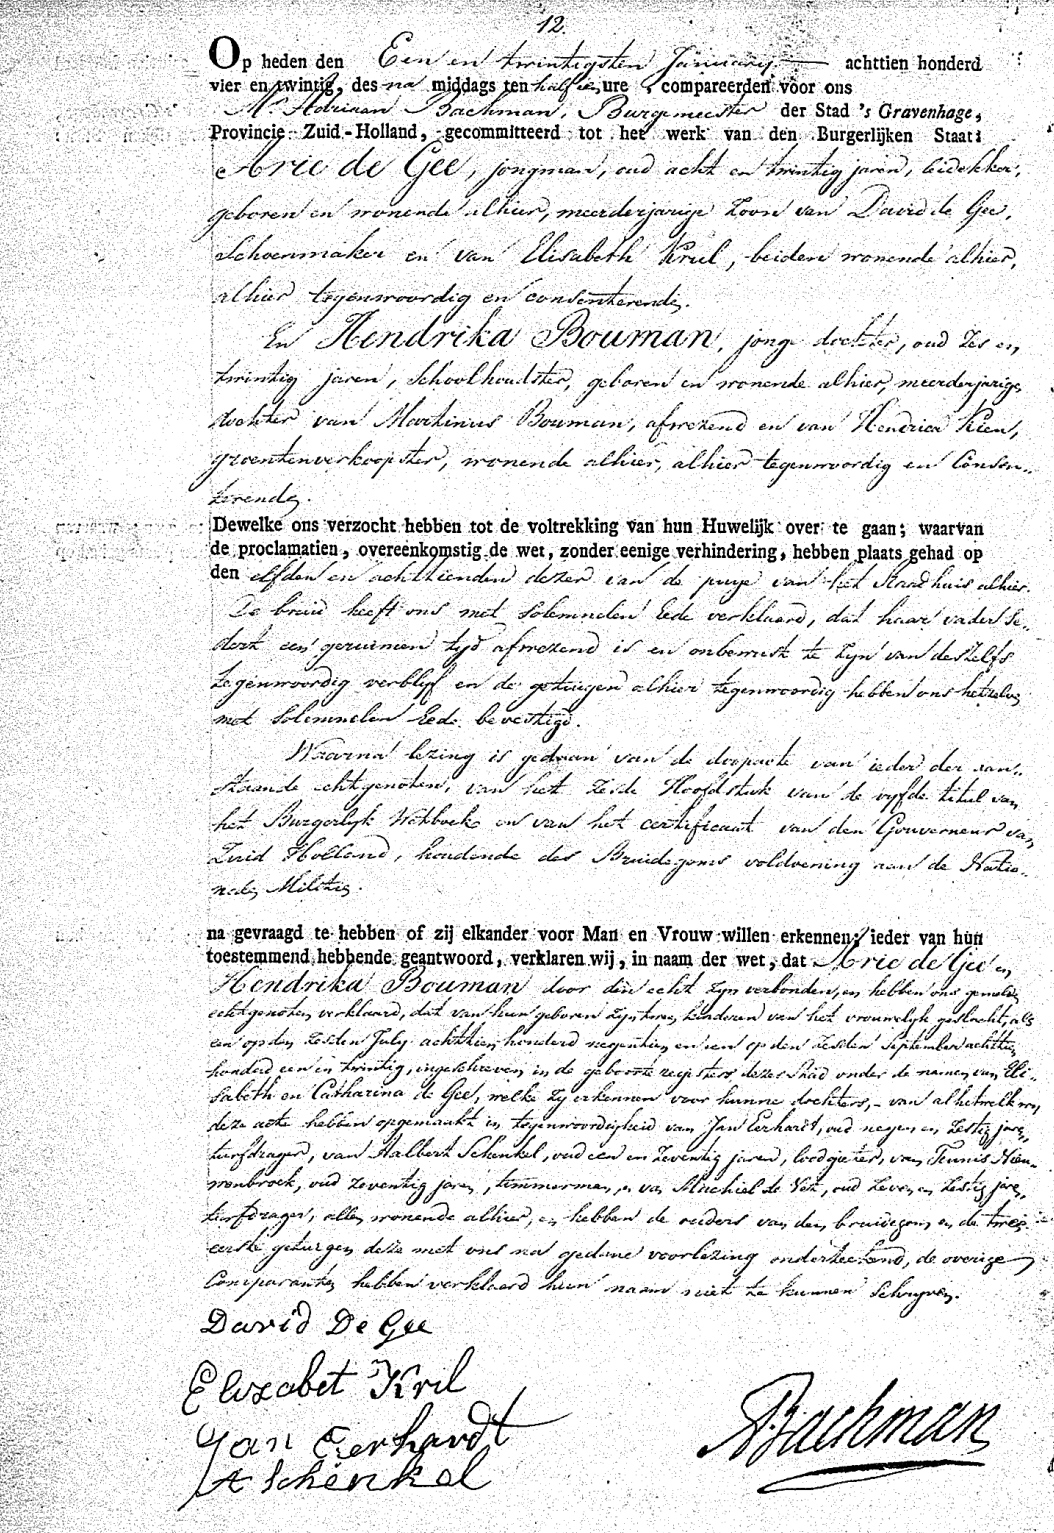 12.
Op heden den Een en twintigsten January achttien honderd
vier en twintig, des na middags ten half een ure, compareerden voor ons
Mr. Adriaan Bachman, Burgemeester der Stad 's Gravenhage,
Provincie Zuid-Holland, gecommitteerd tot het werk van den Burgerlijken Staat:
Arie de Gee, jongman, oud acht en twintig jaren, leidekker,
geboren en wonende alhier, meerderjarige zoon van David de Gee,
Schoenmaker en van Elisabeth Krul, beiden wonende alhier,
alhier tegenwoordig en consenterende.
En Hendrika Bouman, jonge dochter, oud zes en
twintig jaren, Schoolhoudster, geboren en wonende alhier, meerderjarige
dochter van Martinus Bouman, afwezend en van Hendrica Kien,
groentenverkoopster, wonende alhier, alhier tegenwoordig en Consen„
terende.
Dewelke ons verzocht hebben tot de voltrekking van hun Huwelijk over te gaan; waarvan
de proclamatien, overeenkomstig de wet, zonder eenige verhindering, hebben plaats gehad op
den elfden en achttienden dezer van de puye van het Stadhuis alhier.
De bruid heeft ons met solemnelen Eede verklaard, dat haar vader se„
dert een geruimen tyd afwezend is en onbewust te zyn van deszelfs
tegenwoordig verblyf en de getuigen alhier tegenwoordig hebben ons hetzelve
met solemnelen Eede bevestigd.
Waarna lezing is gedaan van de doopacte van ieder der aan„
staande echtgenoten, van het zesde Hoofdstuk van de vyfde titel van
het Burgerlyk Wetboek en van het certificaat van den Gouverneur van
Zuid Holland, houdende des Bruidegoms voldoening aan de Natio„
nale Militie.
na gevraagd te hebben of zij elkander voor Man en Vrouw willen erkennen; ieder van hun
toestemmend hebbende geantwoord, verklaren wij, in naam der wet, dat Arie de Gee en
Hendrika Bouman door den echt zyn verbonden, en hebben ons gemelde
echtgenoten verklaard, dat van hun geboren zyn twee kinderen van het vrouwelyk geslacht, als
een op den zesden July achttien honderd negentien en een op den zesden September achttien
honderd een en twintig, ingeschreven in de geboorte registers dezer Stad onder de namen van Eli„
sabeth en Catharina de Gee, welke zy erkennen voor hunne dochters, – van al hetwelk wy
deze acte hebben opgemaakt in tegenwoordigheid van Jan Eerhardt, oud negen en zestig jaren,
turfdrager, van Aalbert Schenkel, oud een en zeventig jaren, loodgieter, van Teunis Nieu„
wenbroek, oud zeventig jaren, timmerman, en van Machiel de Vet, oud zeven en zestig jaren,
turfdrager, allen wonende alhier, en hebben de ouders van den bruidegom en de twee
eerste getuigen deze met ons na gedane voorlezing onderteekend, de overige
Comparanten hebben verklaard hun naam niet te kunnen schryven.
David De Gee
Elizabet Kril
Jan Eerhardt
A Schenkel
ABachman